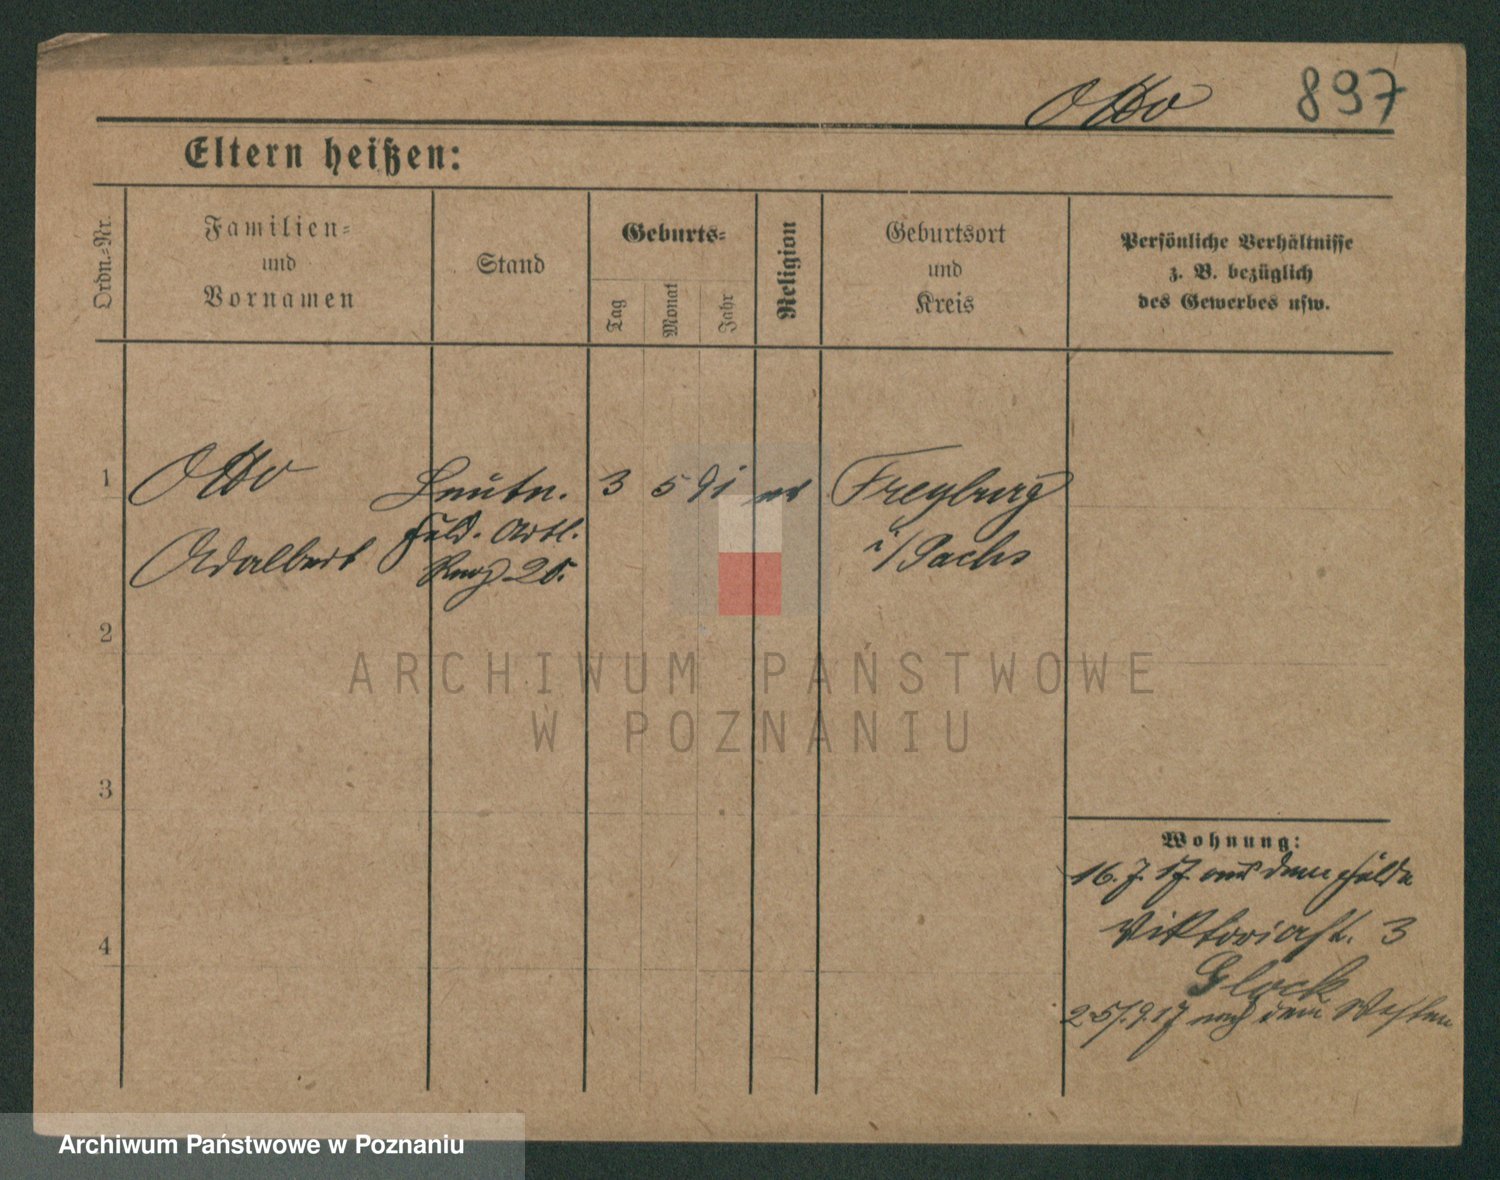 Otto 897
Eltern heißen:
Ordn.-Nr.
Familien-
und
Vornamen
Stand
Geburts-
Tag
Monat
Jahr
Religion
Geburtsort
und
Kreis
Persönliche Verhältnisse
z. B. bezüglich
des Gewerbes usw.
1 Otto Leutn. 3 5 91 ev Freyburg
Adalbert Feld. Artl. i/Sachs
Regt. 20.
2
3
4
Wohnung:
16.7.17 aus dem Felde
Viktoriast. 3
Glock
25/.9.17 nach dem Westen
ARCHIWUM PAŃSTWOWE
W POZNANIU
Archiwum Państwowe w Poznaniu